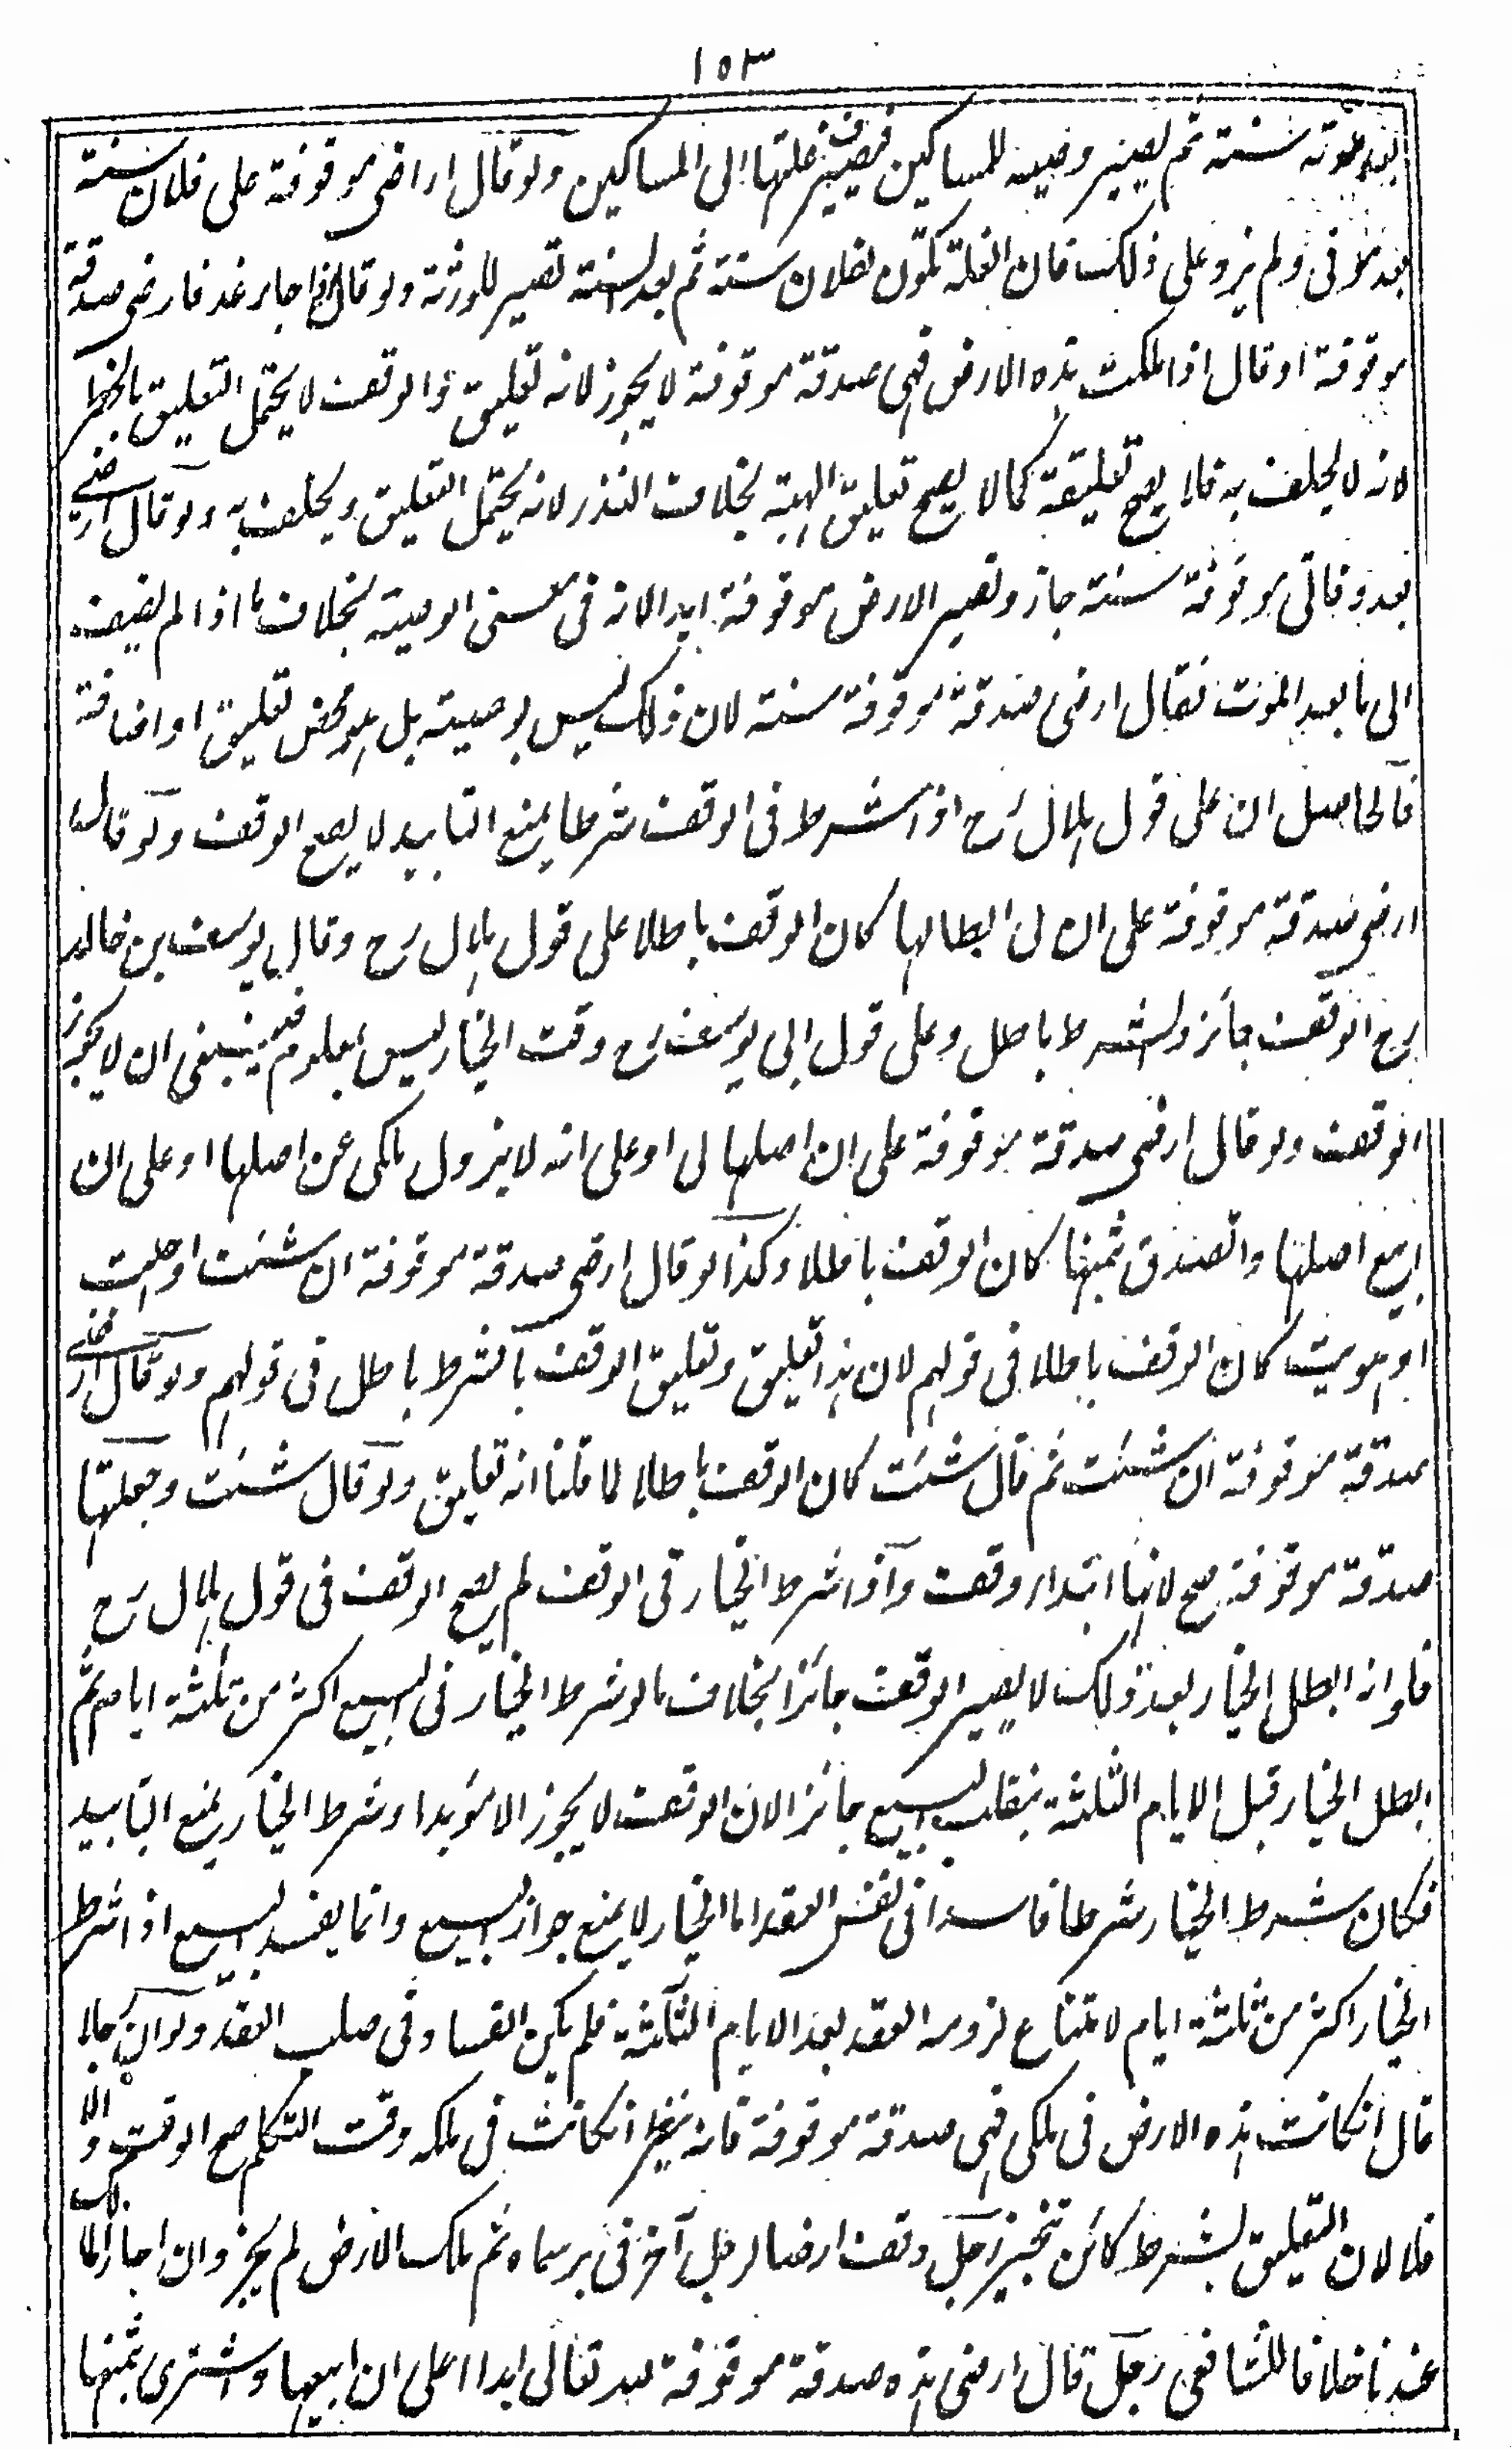 ١٥٣
بعد موته سنة ثم يصير وصية للمساكين فيصير غلتها الى المساكين ولو قال اراضى موقوفة على فلان سنة
بعد موتى ولم يزد على ذلك فان الغلة تكون لفلان سنة ثم بعد السنة تصير للورثة ولو قال اذا جاء غد فارضى صدقة
موقوفة او قال اذا ملكت هذه الارض فهى صدقة موقوفة لا يجوز لانه تعليق والوقف لا يحتمل التعليق بالخطر
لانه لا يحلف به فلا يصح تعليقة كما لا يصح تعليق الهبة بخلاف النذر لانه يحتمل التعليق ويحلف به ولو قال ارضى
بعد وفاتى موقوفة سنة جاز وتصير الارض موقوفة ابدا لانه فى معنى الوصية بخلاف ما اذا لم يضف
الى ما بعد الموت فقال ارضى صدقة موقوفة سنة لان ذلك ليس بوصية بل هو محض تعليق او اضافة
فالحاصل ان على قول هلال رح اذا شرط فى الوقف شرطا يمنع التابيد لا يصح الوقف ولو قال
ارضى صدقة موقوفة على ان لى ابطالها كان الوقف باطلا على قول هلال رح وقال يوسف بن خالد
رح الوقف جائز والشرط باطل وعلى قول ابى يوسف رح وقت الخيار ليس بمعلوم فينبغى ان لا يجوز
الوقف ولو قال ارضى صدقة موقوفة على ان اصلها لى او على انه لا يزول ملكى عن اصلها او على ان
ابيع اصلها واتصدق بثمنها كان الوقف باطلا وكذا لو قال ارضى صدقة موقوفة ان شئت او احببت
او هويت كان الوقف باطلا فى قولهم لان هذا تعليق وتعليق الوقف بالشرط باطل فى قولهم ولو قال ارضى
صدقة موقوفة ان شئت ثم قال شئت كان الوقف باطلا لما قلنا انه تعليق ولو قال شئت وجعلتها
صدقة موقوفة صح لانها ابتداء وقف واذا شرط الخيار فى الوقف لم يصح الوقف فى قول هلال رح
فلو انه ابطل الخيار بعد ذلك لا يصير الوقف جائزا بخلاف ما لو شرط الخيار فى البيع اكثر من ثلثة ايام ثم
ابطل الخيار قبل الايام الثلثة ينقلب البيع جائزا لان الوقف لا يجوز الا مؤبدا وشرط الخيار يمنع التابيد
فكان شرط الخيار شرطا فاسدا فى نفس العقد اما الخيار لا يمنع جواز البيع وانما يفسد البيع اذا شرط
الخيار اكثر من ثلثة ايام لامتناع لزوم العقد بعد الايام الثلثة فلم يكن الفساد فى صلب العقد ولو ان رجلا
قال انكانت هذه الارض فى ملكى فهى صدقة موقوفة فانه ينظر انكانت فى ملكه وقت التكلم صح الوقف والا
فلا لان التعليق بشرط كائن تنجيز رجل وقف ارضا لرجل آخر فى بر سماه ثم ملك الارض لم يجز وان اجاز المالك
عندنا خلافا للشافعى رجل قال ارضى هذه صدقة موقوفة لله تعالى ابدا على ان ابيعها واشترى بثمنها